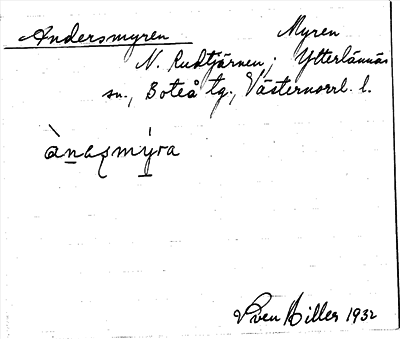 Andersmyren Myren
N. Rudtjärnen; Ytterlännäs
sn., Boteå tg., Västernorrl. l.
ànasmýra
Sven Hiller 1932